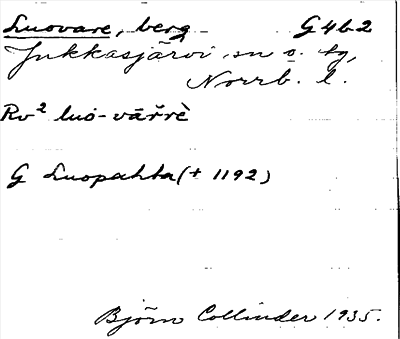 Luovare, berg G4b2
Jukkasjärvi sn o. tg,
Norrb. l.
Rv² luo-vāřrè
G Luopahta (+ 1192)
Björn Collinder 1935.